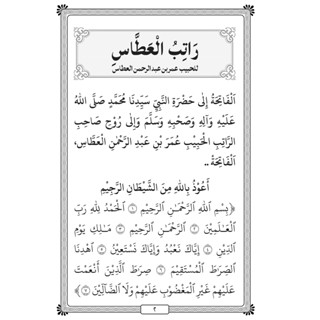 رَاتِبُ الْعَطَّاسِ
للحبيب عمر بن عبد الرحمن العطاس
اَلْفَاتِحَةُ إِلَى حَضْرَةِ النَّبِيِّ سَيِّدِنَا مُحَمَّدٍ صَلَّى اللهُ
عَلَيْهِ وَآلِهِ وَصَحْبِهِ وَسَلَّمَ وَإِلَى رُوْحِ صَاحِبِ
الرَّاتِبِ الْحَبِيْبِ عُمَرَ بْنِ عَبْدِ الرَّحْمٰنِ الْعَطَّاسِ،
اَلْفَاتِحَةُ ..
أَعُوْذُ بِاللهِ مِنَ الشَّيْطَانِ الرَّجِيْمِ
﴿بِسْمِ اللَّهِ الرَّحْمَٰنِ الرَّحِيمِ ۝١ الْحَمْدُ لِلَّهِ رَبِّ
الْعَالَمِينَ ۝٢ الرَّحْمَٰنِ الرَّحِيمِ ۝٣ مَالِكِ يَوْمِ
الدِّينِ ۝٤ إِيَّاكَ نَعْبُدُ وَإِيَّاكَ نَسْتَعِينُ ۝٥ اهْدِنَا
الصِّرَاطَ الْمُسْتَقِيمَ ۝٦ صِرَاطَ الَّذِينَ أَنْعَمْتَ
عَلَيْهِمْ غَيْرِ الْمَغْضُوبِ عَلَيْهِمْ وَلَا الضَّالِّينَ ۝٧﴾
٢